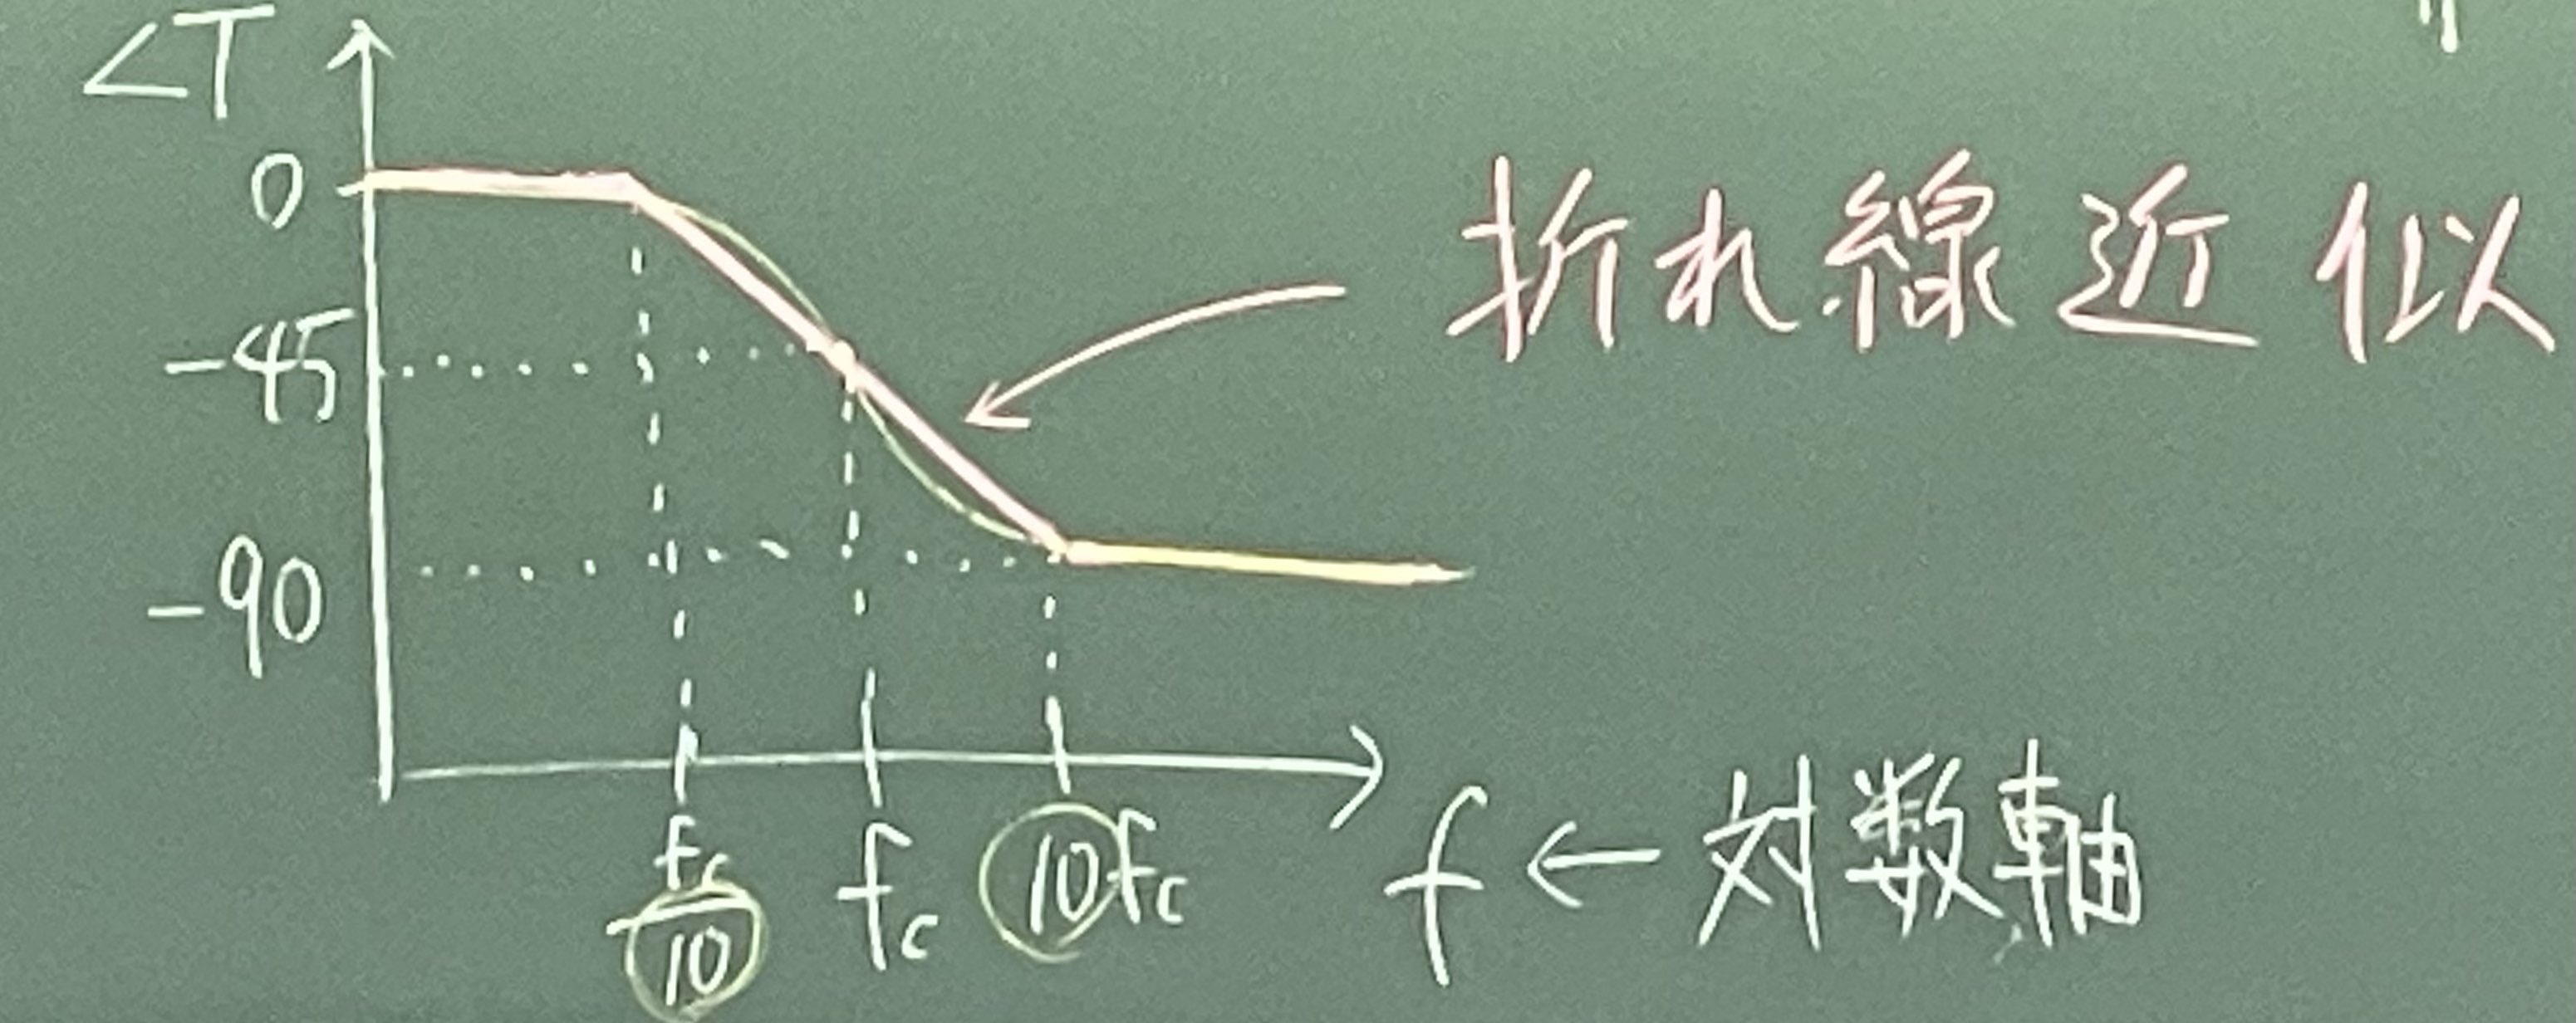 ∠T
0
-45
-90
折れ線近似
fc/10
fc
10fc
f ← 対数軸